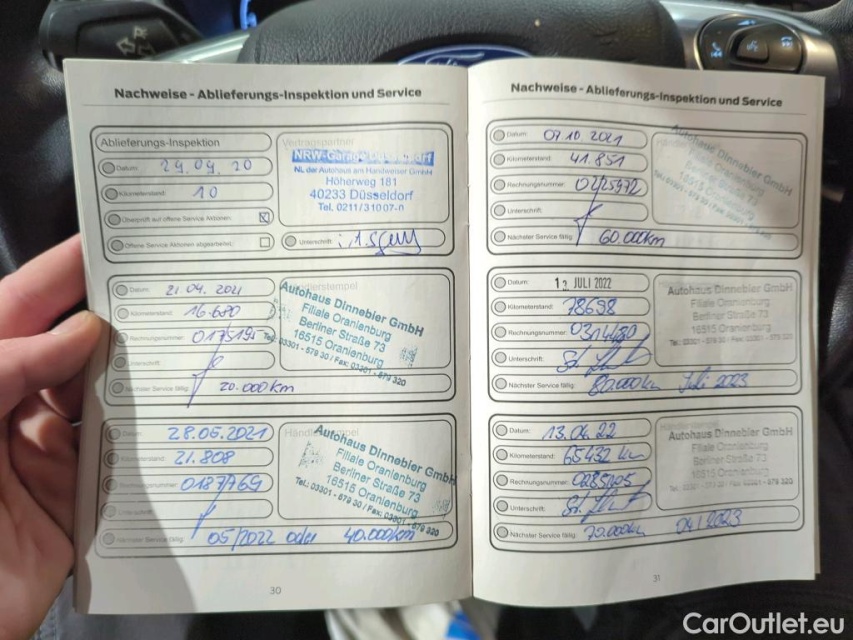 Nachweise - Ablieferungs-Inspektion und Service
Ablieferungs-Inspektion
Datum: 24.09.20
Kilometerstand: 10
Überprüft auf offene Service Aktionen:
Offene Service Aktionen abgearbeitet:
Vertragspartner
NRW-Garage Düsseldorf
NL der Autohaus am Handweiser GmbH
Höherweg 181
40233 Düsseldorf
Tel. 0211/31007-0
Unterschrift:
Datum: 21 04. 2021
Kilometerstand: 16.680
Rechnungsnummer: 0175195
Unterschrift:
Nächster Service fällig: 20.000km
Autohaus Dinnebier GmbH
Filiale Oranienburg
Berliner Straße 73
16515 Oranienburg
Tel.: 03301 - 579 30 / Fax: 03301 - 579 320
Datum: 28.05.2021
Kilometerstand: 21.808
Rechnungsnummer: 0187769
Unterschrift:
Nächster Service fällig: 05/2022 oder 40.000km
Autohaus Dinnebier GmbH
Filiale Oranienburg
Berliner Straße 73
16515 Oranienburg
Tel.: 03301 - 579 30 / Fax: 03301 - 579 320
30
Nachweise - Ablieferungs-Inspektion und Service
Datum: 07.10.2021
Kilometerstand: 41.851
Rechnungsnummer: 0225972
Unterschrift:
Nächster Service fällig: 60.000km
Autohaus Dinnebier GmbH
Filiale Oranienburg
Berliner Straße 73
16515 Oranienburg
Datum: 12. JULI 2022
Kilometerstand: 78698
Rechnungsnummer: 0314480
Unterschrift:
Nächster Service fällig: 80.000km Juli 2023
Autohaus Dinnebier GmbH
Filiale Oranienburg
Berliner Straße 73
16515 Oranienburg
Tel.: 03301 - 579 30 / Fax: 03301 - 579 320
Datum: 13.04.22
Kilometerstand: 65432 km
Rechnungsnummer: 0285105
Unterschrift:
Nächster Service fällig: 70.000km 04/2023
Autohaus Dinnebier GmbH
Filiale Oranienburg
Berliner Straße 73
16515 Oranienburg
Tel.: 03301 - 579 30 / Fax: 03301 - 579 320
31
CarOutlet.eu